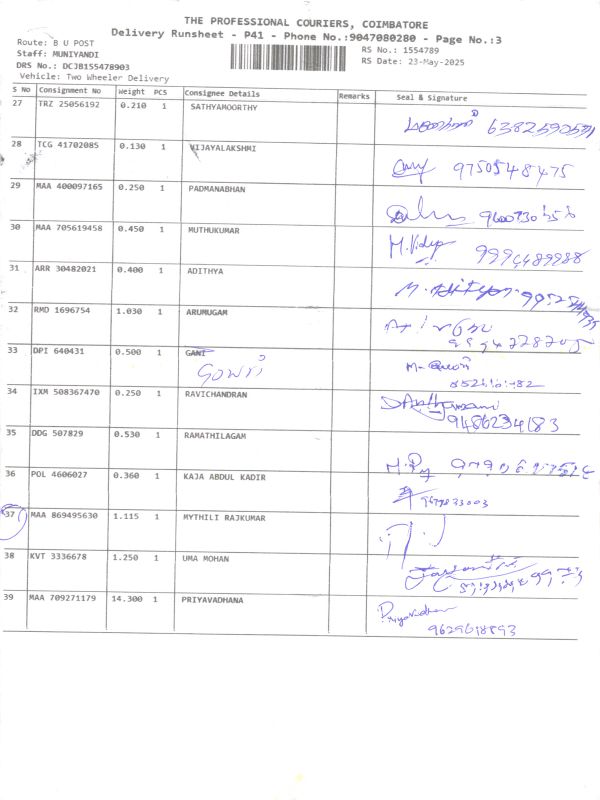 THE PROFESSIONAL COURIERS, COIMBATORE
Delivery Runsheet - P41 - Phone No.:9047080280 - Page No.:3
Route: B U POST
Staff: MUNIYANDI
DRS No.: DCJB155478903
Vehicle: Two Wheeler Delivery
RS No.: 1554789
RS Date: 23-May-2025
S No Consignment No Weight PCS Consignee Details Remarks Seal & Signature
27 TRZ 25056192 0.210 1 SATHYAMOORTHY
28 TCG 41702085 0.130 1 VIJAYALAKSHMI 9750548475
29 MAA 400097165 0.250 1 PADMANABHAN
30 MAA 705619458 0.450 1 MUTHUKUMAR M. Vidya
31 ARR 30482021 0.400 1 ADITHYA
32 RMD 1696754 1.030 1 ARUMUGAM
33 DPI 640431 0.500 1 GANI
Gowri
34 IXM 508367470 0.250 1 RAVICHANDRAN
9486234183
35 DDG 507829 0.530 1 RAMATHILAGAM
36 POL 4606027 0.360 1 KAJA ABDUL KADIR
37 MAA 869495630 1.115 1 MYTHILI RAJKUMAR
38 KVT 3336678 1.250 1 UMA MOHAN
39 MAA 709271179 14.300 1 PRIYAVADHANA